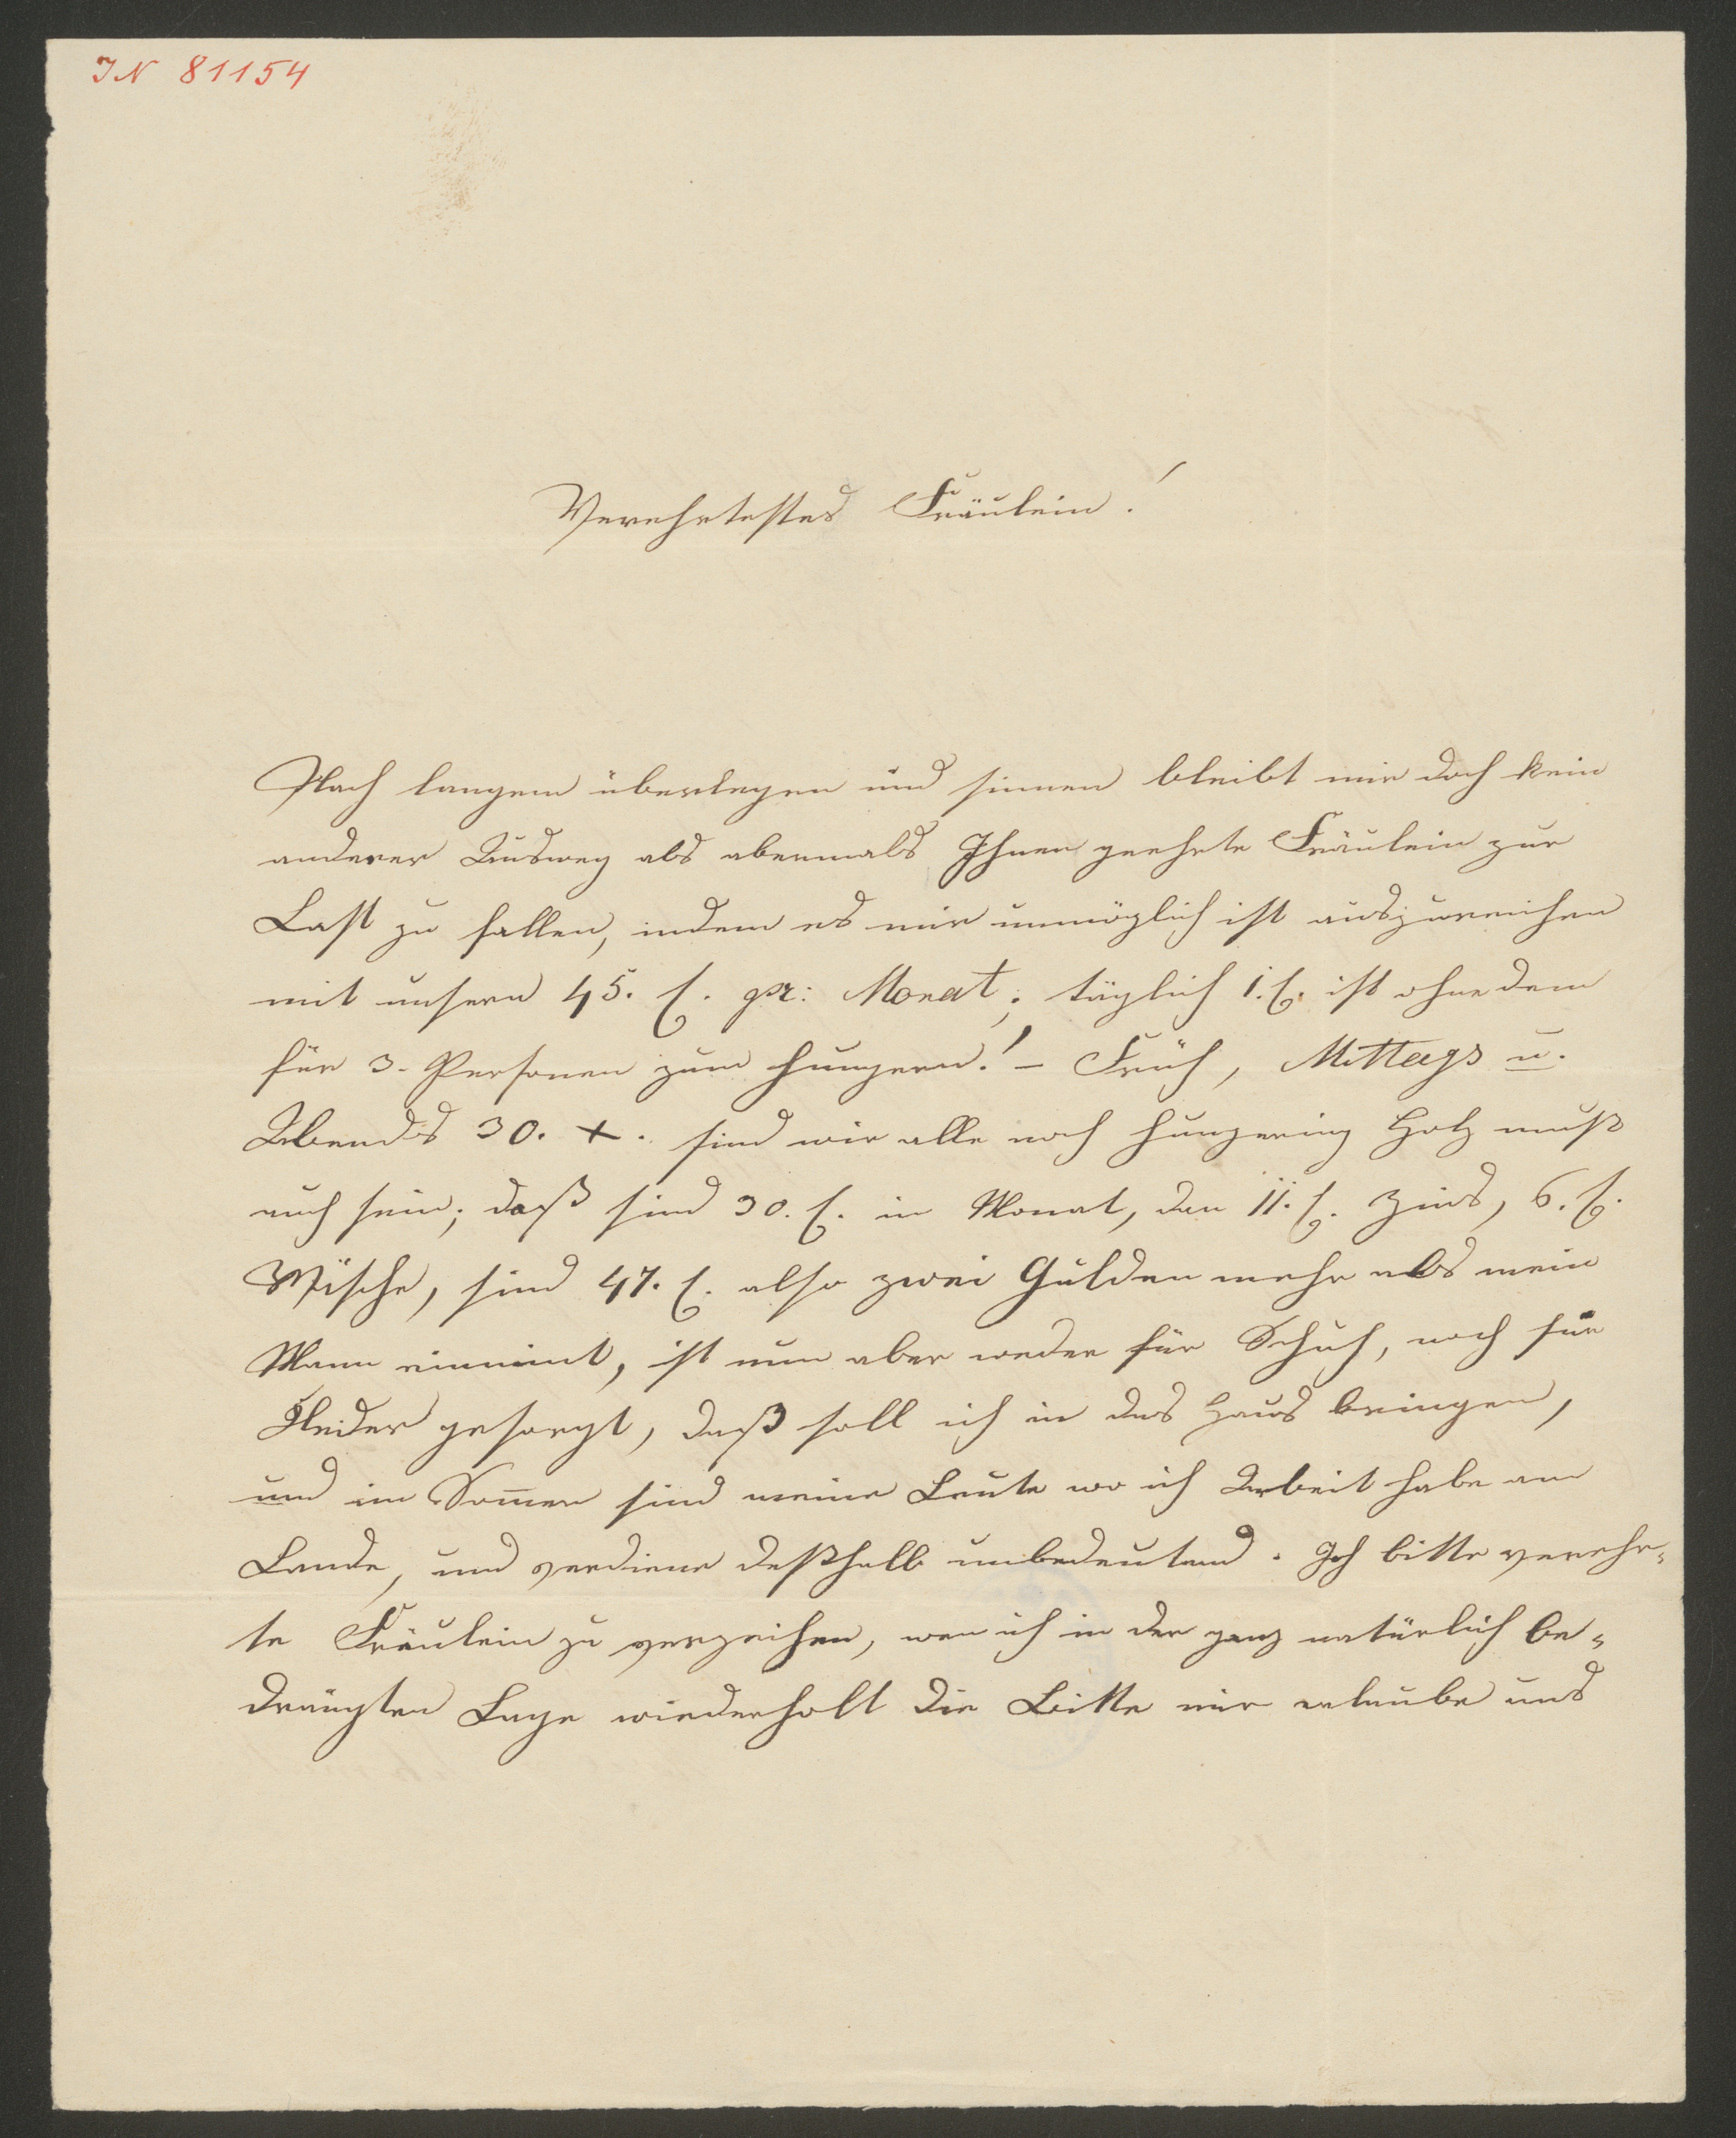 IN 81154
Verehrtestes Fräulein!
Nach langem überlegen und sinnen bleibt mir doch kein
anderer Ausweg als abermals Ihnen geehrte Fräulein zur
Last zu fallen, indem es mir unmöglich ist auszureichen
mit unsern 45. f. pr: Monat; täglich 1. f. ist ohne dem
für 3. Personen zum hungern! – Früh, Mittags u.
Abends 30. x. sind wir alle noch hungerig Holz muß
auch sein; daß sind 30. f. in Monat, dan 11. f. Zins, 6. f.
Wäsche, sind 47. f. also zwei Gulden mehr als mein
Mann einnimt, ist nun aber weder für Schuh, noch für
Kleider gesorgt, daß soll ich in das Haus bringen,
und im Som̄er sind meine Leute wo ich Arbeit habe am
Lande, und verdiene deßhalb unbedeutend. Ich bitte verehr-
te Fräulein zu verzeihen, wen ich in der ganz natürlich be-
drängten Lage wiederholt die Bitte mir erlaube uns